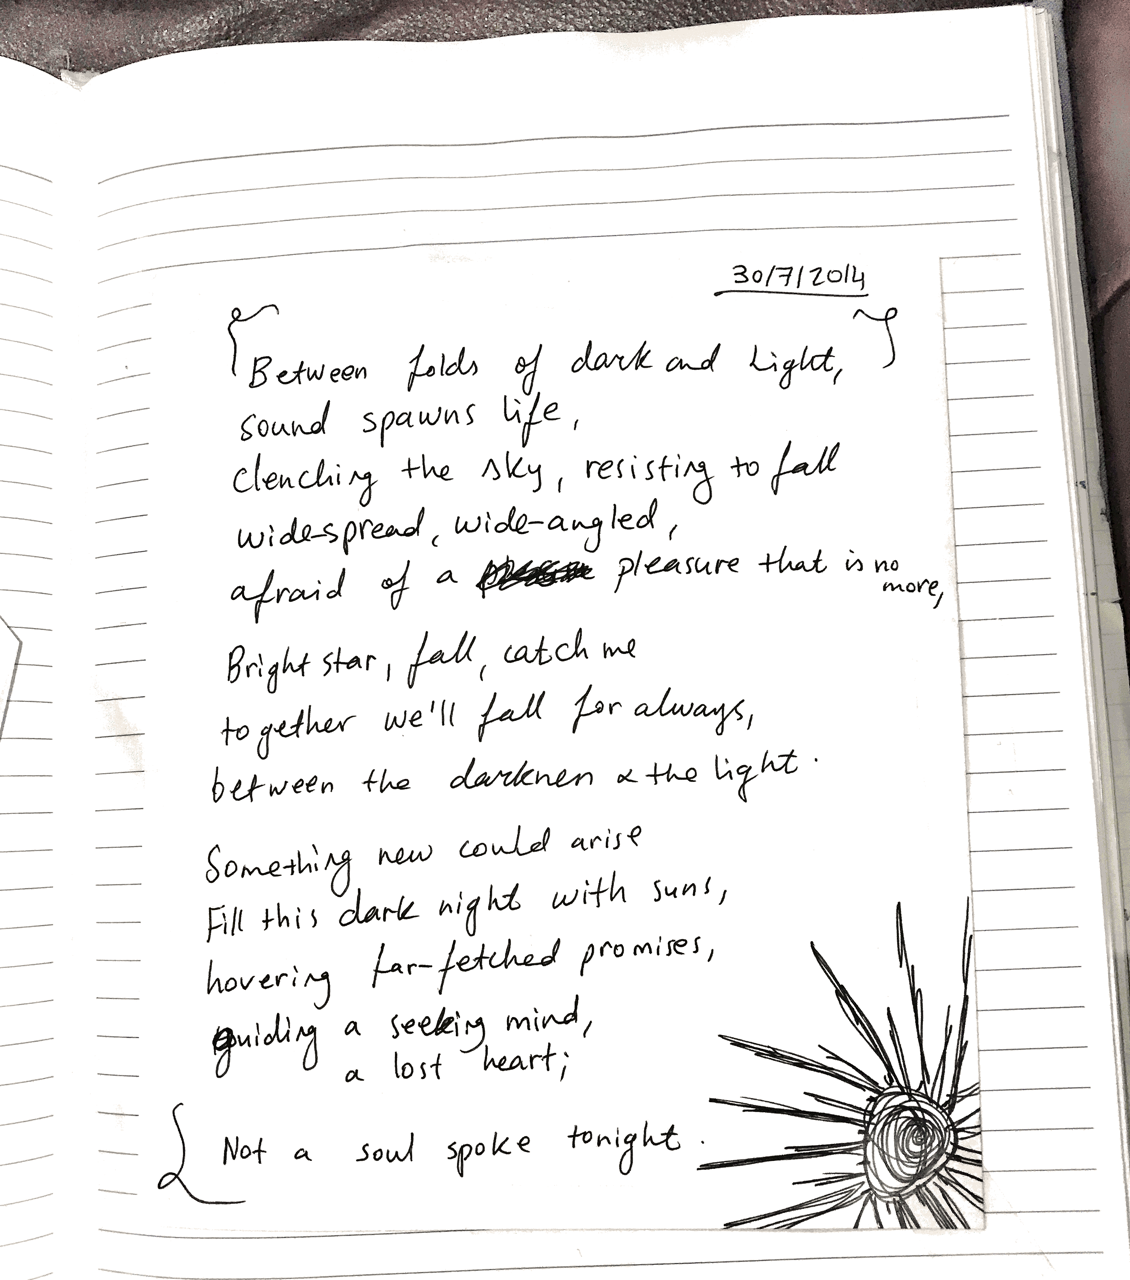 30/7/2014
Between folds of dark and Light,
sound spawns life,
clenching the sky, resisting to fall
wide-spread, wide-angled,
afraid of a pleasure that is no
more,
Bright star, fall, catch me
together we'll fall for always,
between the darkness & the light.
Something new could arise
Fill this dark night with suns,
hovering far-fetched promises,
guiding a seeking mind,
a lost heart;
Not a soul spoke tonight.